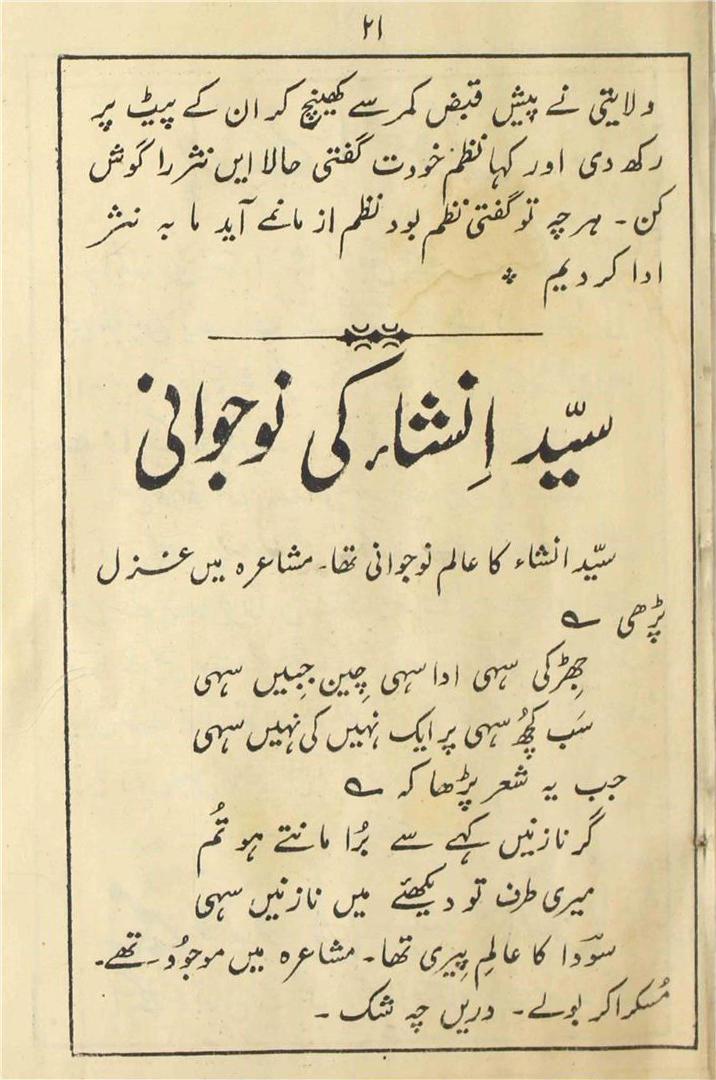 ۲۱
ولایتی نے پیش قبض کمر سے کھینچ کر ان کے پیٹ پر
رکھ دی اور کہا نظم خودت گفتی حالا ایں نثر را گوش
کن۔ ہرچہ تو گفتی نظم بود نظم از ما نمے آید ما بہ نثر
ادا کردیم ؞
سیّد اِنشاء کی نوجوانی
سیّد انشاء کا عالم نوجوانی تھا۔ مشاعرہ میں غزل
پڑھی ؎
جِھڑکی سہی ادا سہی چِین جبِیں سہی
سَب کچُھ سہی پر ایک نہیں کی نہیں سہی
جب یہ شعر پڑھا کہ ؎
گر نازنیں کہے سے بُرا مانتے ہو تُم
میری طرف تو دیکھئے میں نازنیں سہی
سوؔدا کا عالمِ پیری تھا۔ مشاعرہ میں موجُود تھے۔
مُسکرا کر بولے۔ دریں چہ شک ۔